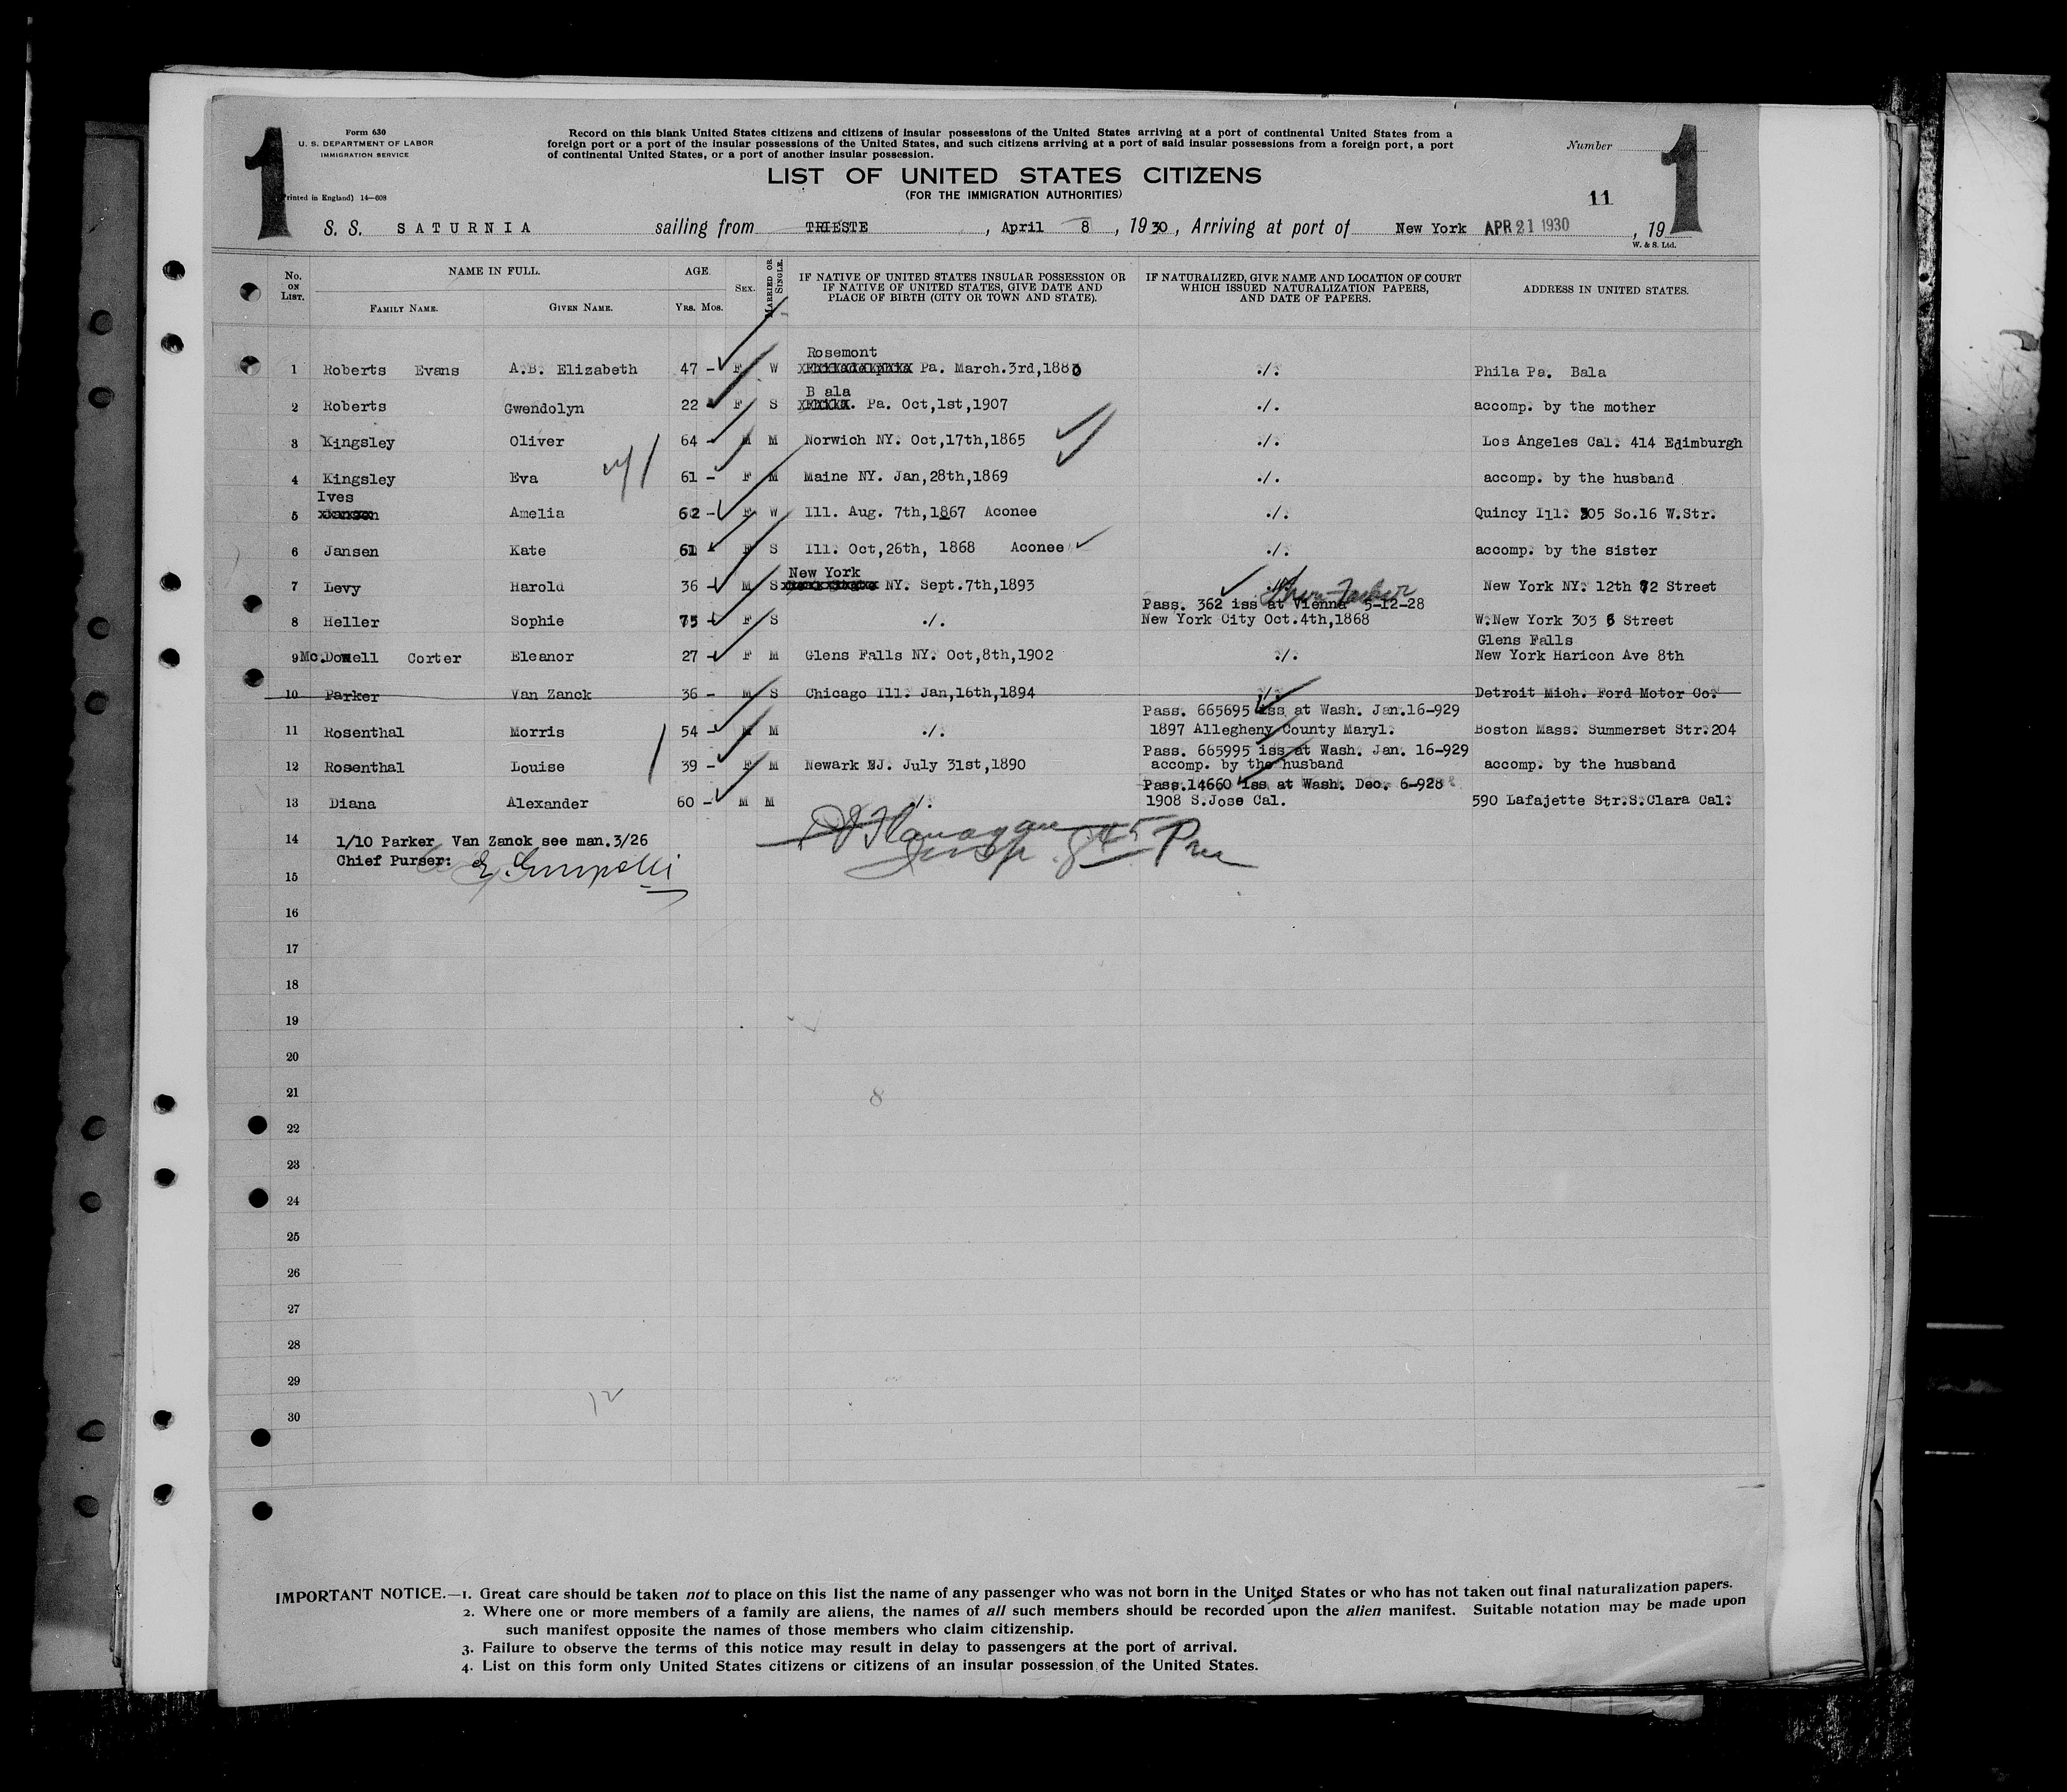 1
Form 630
U. S. DEPARTMENT OF LABOR
IMMIGRATION SERVICE
Printed in England) 14—608
Record on this blank United States citizens and citizens of insular possessions of the United States arriving at a port of continental United States from a
foreign port or a port of the insular possessions of the United States, and such citizens arriving at a port of said insular possessions from a foreign port, a port
of continental United States, or a port of another insular possession.
Number
1
LIST OF UNITED STATES CITIZENS
(FOR THE IMMIGRATION AUTHORITIES)
11
S. S. SATURNIA sailing from TRIESTE, April 8, 1930, Arriving at port of New York APR 21 1930, 19
W. & S. Ltd.
No. ON LIST. NAME IN FULL. FAMILY NAME. GIVEN NAME. AGE. YRS. MOS. SEX. MARRIED OR SINGLE. IF NATIVE OF UNITED STATES INSULAR POSSESSION OR IF NATIVE OF UNITED STATES, GIVE DATE AND PLACE OF BIRTH (CITY OR TOWN AND STATE). IF NATURALIZED, GIVE NAME AND LOCATION OF COURT WHICH ISSUED NATURALIZATION PAPERS, AND DATE OF PAPERS. ADDRESS IN UNITED STATES.
Rosemont
1 Roberts Evans A.B. Elizabeth 47 - F W Pa. March.3rd,1883 ./. Phila Pa. Bala
B ala
2 Roberts Gwendolyn 22 F S Pa. Oct,1st,1907 ./. accomp. by the mother
3 Kingsley Oliver 64 - M M Norwich NY. Oct,17th,1865 ./. Los Angeles Cal. 414 Edimburgh
4 Kingsley Eva 61 - F M Maine NY. Jan,28th,1869 ./. accomp. by the husband
Ives
5 Amelia 62 - F W Ill. Aug. 7th,1867 Aconee ./. Quincy Ill. 305 So.16 W.Str.
6 Jansen Kate 61 F S Ill. Oct,26th, 1868 Aconee ./. accomp. by the sister
New York
7 Levy Harold 36 - M S NY. Sept.7th,1893 New York NY. 12th 72 Street
Pass. 362 iss at Vienna 5-12-28
8 Heller Sophie 75 - F S ./. New York City Oct.4th,1868 W.New York 303 6 Street
Glens Falls
9 Mc.Dowell Corter Eleanor 27 - F M Glens Falls NY. Oct,8th,1902 ./. New York Haricon Ave 8th
10 Parker Van Zanck 36 - M S Chicago Ill. Jan,16th,1894 ./. Detroit Mich. Ford Motor Co.
Pass. 665695 iss at Wash. Jan.16-929
11 Rosenthal Morris 54 - M M ./. 1897 Allegheny County Maryl. Boston Mass. Summerset Str.204
Pass. 665995 iss at Wash. Jan. 16-929
12 Rosenthal Louise 39 - F M Newark NJ. July 31st,1890 accomp. by the husband accomp. by the husband
Pass.14660 iss at Wash. Dec. 6-928
13 Diana Alexander 60 - M M ./. 1908 S.Jose Cal. 590 Lafajette Str.S.Clara Cal.
14 1/10 Parker Van Zanck see man.3/26
Chief Purser:
15
16
17
18
19
20
21
8
22
23
24
25
26
27
28
29
12
30
IMPORTANT NOTICE.—1. Great care should be taken not to place on this list the name of any passenger who was not born in the United States or who has not taken out final naturalization papers.
2. Where one or more members of a family are aliens, the names of all such members should be recorded upon the alien manifest. Suitable notation may be made upon
such manifest opposite the names of those members who claim citizenship.
3. Failure to observe the terms of this notice may result in delay to passengers at the port of arrival.
4. List on this form only United States citizens or citizens of an insular possession of the United States.